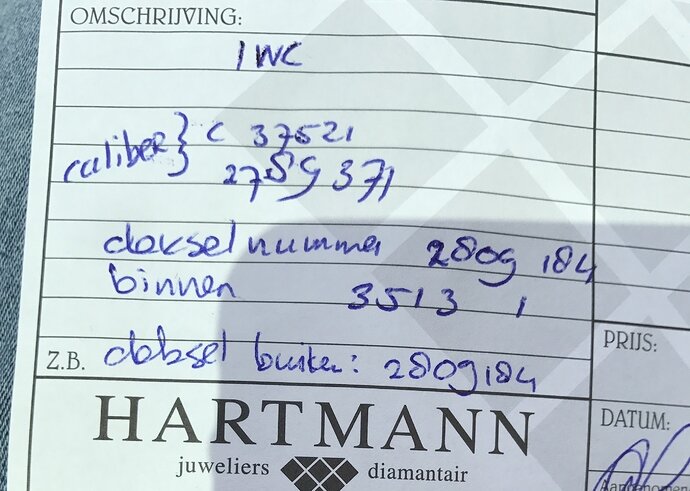 OMSCHRIJVING:
IWC
caliber} C 37521
2789371
deksel nummer 2809184
binnen 3513 1
Z.B. deksel buiten: 2809184
PRIJS:
HARTMANN
juweliers diamantair
DATUM:
Aangenomen